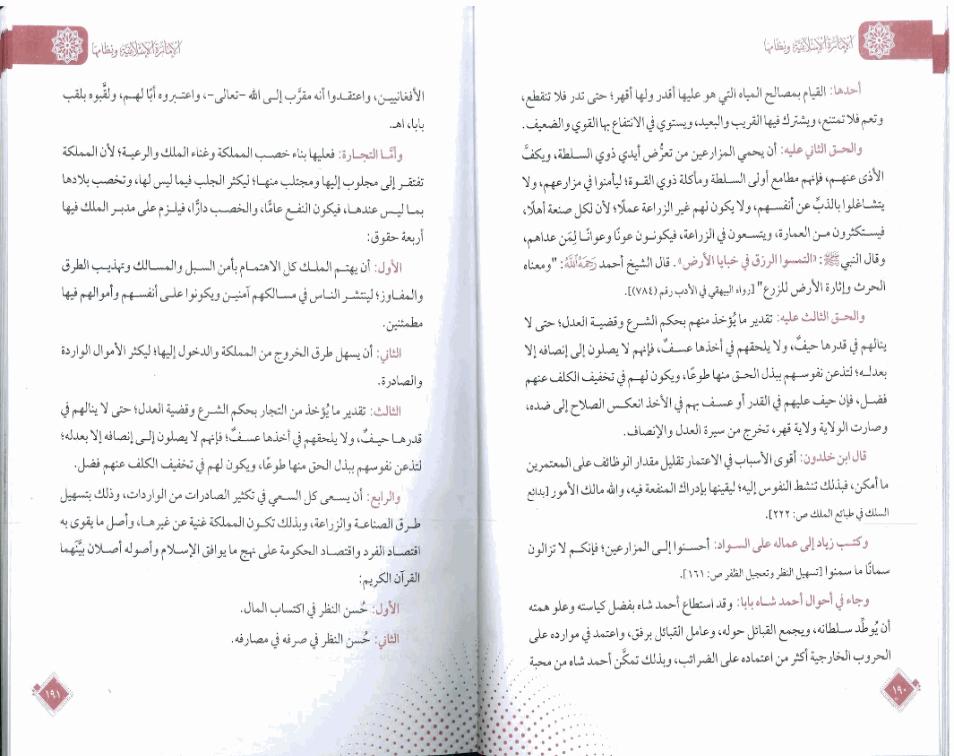 الإمارة الإسلامية ونظامها
أحدها: القيام بمصالح المياه التي هو عليها أقدر ولها أقهر؛ حتى تدر فلا تنقطع،
وتعم فلا تمتنع، ويشترك فيها القريب والبعيد، ويستوي في الانتفاع بها القوي والضعيف.
والحق الثاني عليه: أن يحمي المزارعين من تعرُّض أيدي ذوي السلطة، ويكفَّ
الأذى عنهم، فإنهم مطامع أولى السلطة ومأكلة ذوي القوة؛ ليأمنوا في مزارعهم، ولا
يتشاغلوا بالذبِّ عن أنفسهم، ولا يكون لهم غير الزراعة عملًا؛ لأن لكل صنعة أهلًا،
فيستكثرون من العمارة، ويتسعون في الزراعة، فيكونون عونًا وعوانًا لِمَن عداهم،
وقال النبي ﷺ: «التمسوا الرزق في خبايا الأرض». قال الشيخ أحمد رَحِمَهُ اللَّهُ: "ومعناه
الحرث وإثارة الأرض للزرع" [رواه البيهقي في الأدب رقم (٧٨٤)].
والحق الثالث عليه: تقدير ما يُؤخذ منهم بحكم الشرع وقضية العدل؛ حتى لا
ينالهم في قدرها حيفٌ، ولا يلحقهم في أخذها عسفٌ، فإنهم لا يصلون إلى إنصافه إلا
بعدله؛ لتذعن نفوسهم ببذل الحق منها طوعًا، ويكون لهم في تخفيف الكلف عنهم
فضل، فإن حيف عليهم في القدر أو عسف بهم في الأخذ انعكس الصلاح إلى ضده،
وصارت الولاية ولاية قهر، تخرج من سيرة العدل والإنصاف.
قال ابن خلدون: أقوى الأسباب في الاعتمار تقليل مقدار الوظائف على المعتمرين
ما أمكن، فبذلك تنشط النفوس إليه؛ ليقينها بإدراك المنفعة فيه، والله مالك الأمور [بدائع
السلك في طبائع الملك ص: ٢٢٢].
وكتب زياد إلى عماله على السواد: أحسنوا إلى المزارعين؛ فإنكم لا تزالون
سمانًا ما سمنوا [تسهيل النظر وتعجيل الظفر ص: ١٦١].
وجاء في أحوال أحمد شاه بابا: وقد استطاع أحمد شاه بفضل كياسته وعلو همته
أن يُوطِّد سلطانه، ويجمع القبائل حوله، وعامل القبائل برفق، واعتمد في موارده على
الحروب الخارجية أكثر من اعتماده على الضرائب، وبذلك تمكَّن أحمد شاه من محبة
١٩٠
الإمارة الإسلامية ونظامها
الأفغانيين، واعتقدوا أنه مقرَّب إلى الله -تعالى-، واعتبروه أبًا لهم، ولقَّبوه بلقب
بابا، اهـ.
وأمَّا التجارة: فعليها بناء خصب المملكة وغناء الملك والرعية؛ لأن المملكة
تفتقر إلى مجلوب إليها ومجتلب منها؛ ليكثر الجلب فيما ليس لها، وتخصب بلادها
بما ليس عندها، فيكون النفع عامًّا، والخصب دارًّا، فيلزم على مدبر الملك فيها
أربعة حقوق:
الأول: أن يهتم الملك كل الاهتمام بأمن السبل والمسالك وتهذيب الطرق
والمفاوز؛ لينتشر الناس في مسالكهم آمنين ويكونوا على أنفسهم وأموالهم فيها
مطمئنين.
الثاني: أن يسهل طرق الخروج من المملكة والدخول إليها؛ ليكثر الأموال الواردة
والصادرة.
الثالث: تقدير ما يُؤخذ من التجار بحكم الشرع وقضية العدل؛ حتى لا ينالهم في
قدرها حيفٌ، ولا يلحقهم في أخذها عسفٌ؛ فإنهم لا يصلون إلى إنصافه إلا بعدله؛
لتذعن نفوسهم ببذل الحق منها طوعًا، ويكون لهم في تخفيف الكلف عنهم فضل.
والرابع: أن يسعى كل السعي في تكثير الصادرات من الواردات، وذلك بتسهيل
طرق الصناعة والزراعة، وبذلك تكون المملكة غنية عن غيرها، وأصل ما يقوى به
اقتصاد الفرد واقتصاد الحكومة على نهج ما يوافق الإسلام وأصوله أصلان بيَّنَهما
القرآن الكريم:
الأول: حُسن النظر في اكتساب المال.
الثاني: حُسن النظر في صرفه في مصارفه.
١٩١